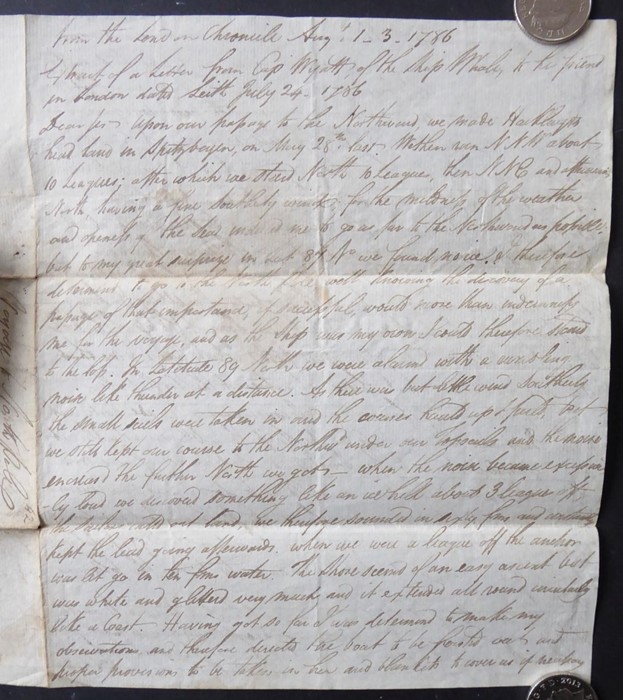 from the London Chronicle Augt 1-3-1786
Extract of a Letter from Cap Wyatt of the Ship Whale to his friend
in London dated Leith July 24 1786
Dear Sir upon our passage to the Northward, we made Hackluyts
head land in Spitzbergen, on May 28th last. We then ran NNW about
10 Leagues; after which we steerd North 10 league, then NNE and afterwards
North, having a fine southerly wind, for the mildness of the weather
and openness of the Seas induced me to go as far to the Northward as possible
but to my great surprize in Lat 84 No we found no ice. & therefore
determind to go to the North Pole well knowing the discovery of a
passage of that importance, if successful, would more than indemnify
me for the voyage, and as the Ship was my own I could therefore stand
to the loss. In Latitude 89 North we were alarmd with a rumbling
noise like thunder at a distance. As there was but little wind Southerly
the small sails were taken in and the courses hauld up & furld, but
we still kept our course to the Northwd under our topsails and the noise
encreasd the further North we got when the noise became excessive
ly loud we discoverd something like an ice hill about 3 league
the called out land, we therefore sounded in fms and
kept the lead going afterwards, when we were a league off the anchor
was let go in ten fms water. The shore seemd of an easy ascent but
was white and glitterd very much and it extended all round
like a Coast. Having got so far I was determind to make my
observations and therefore directed the boat to be out and
proper provisions to be taken in her and blankets to cover us if necessary